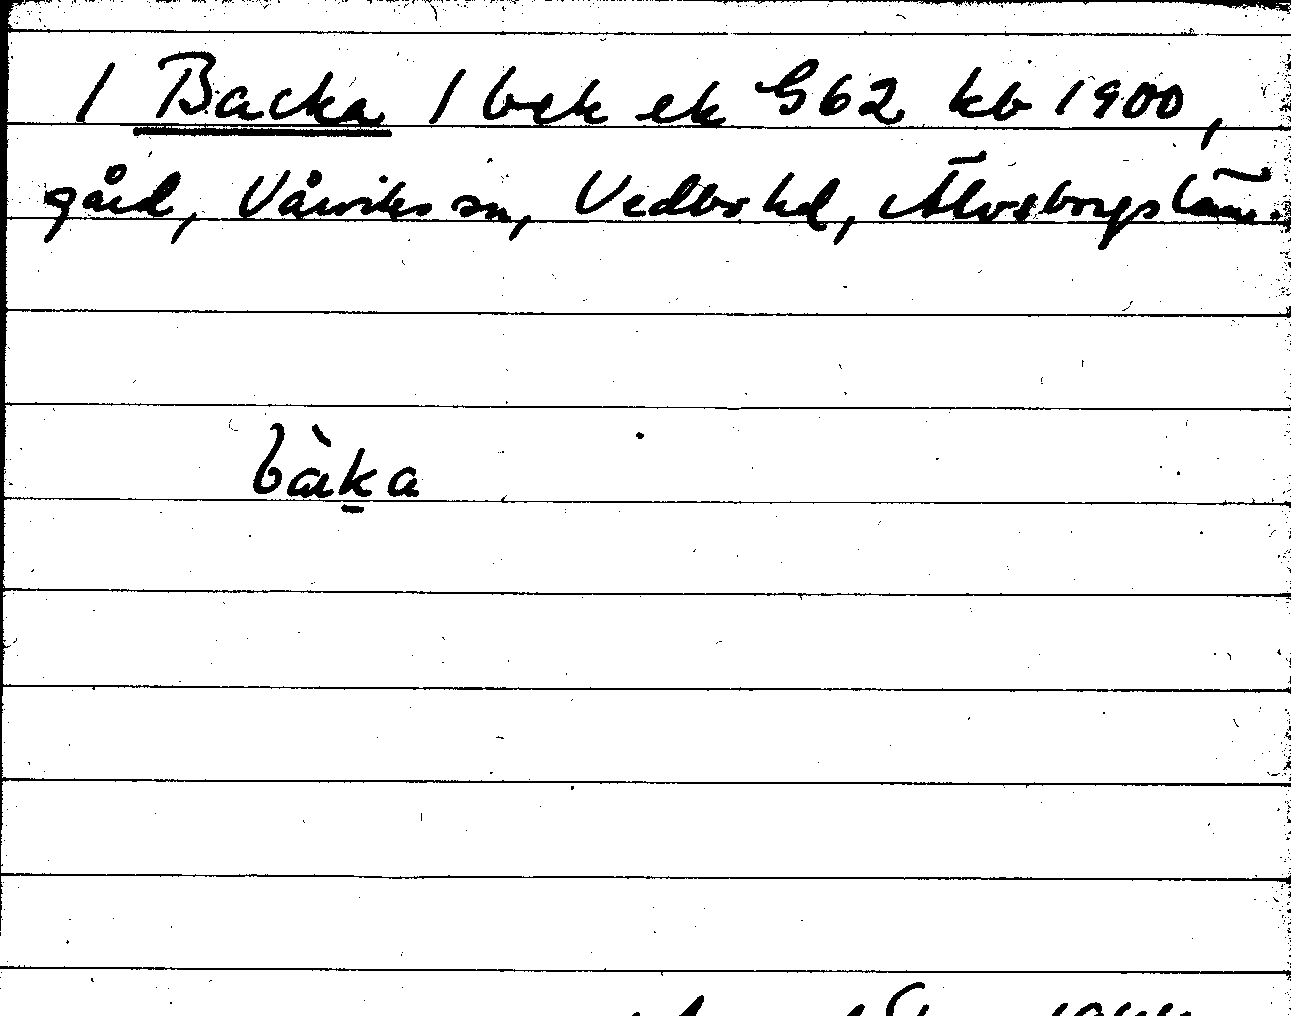 / Backa / bek ek G62 kb 1900,
gård, Vårviks sn, Vedbo hd, Älvsborgs län.
bàka